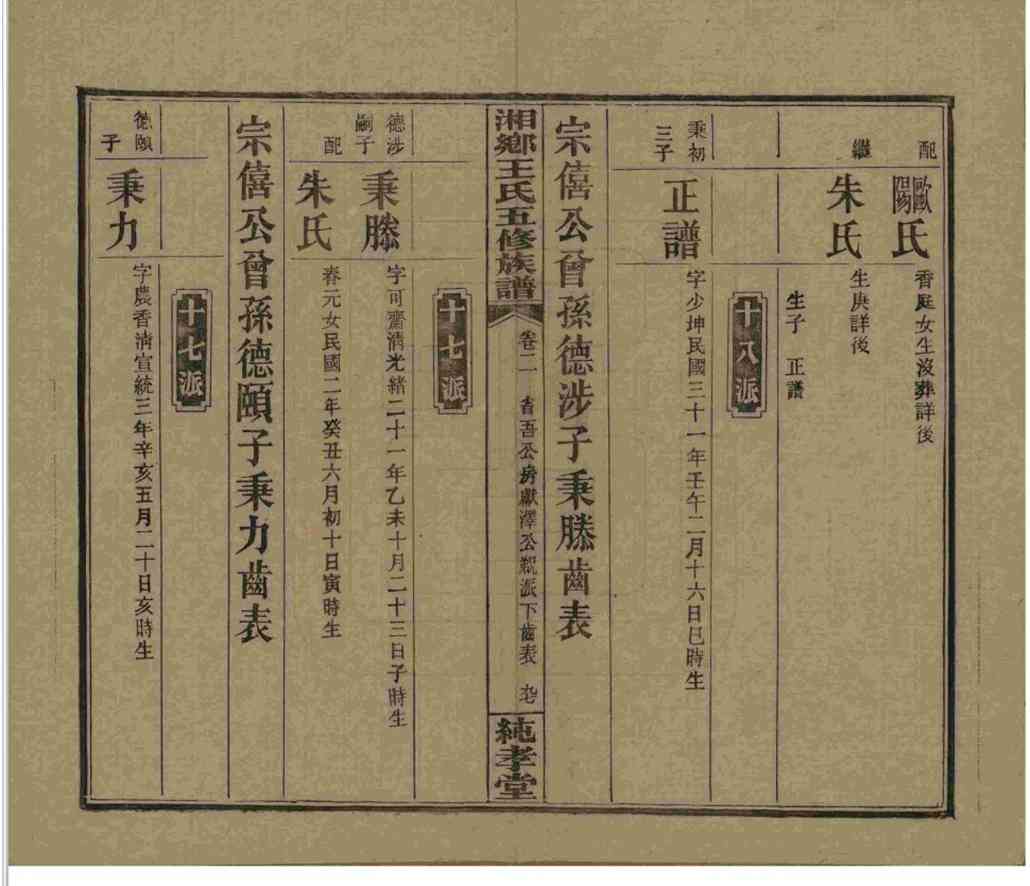 配
歐陽氏
香庭女生沒葬詳後
繼
朱氏
生庚詳後
生子 正譜
十八派
秉初三子
正譜
字少坤民國三十一年壬午二月十六日巳時生
宗僖公曾孫德涉子秉縢齒表
湘鄉王氏五修族譜
卷二
省吾公房獻澤公親派下齒表
純孝堂
十七派
德涉嗣子
秉縢
字可齋清光緒二十一年乙未十月二十三日子時生
配
朱氏
春元女民國二年癸丑六月初十日寅時生
宗僖公曾孫德頤子秉力齒表
十七派
德頤子
秉力
字農香清宣統三年辛亥五月二十日亥時生